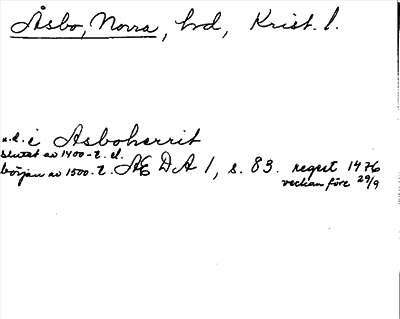 Åsbo, Norra, hd, Krist. l.
u.d. i Asboherrit
slutet av 1400-t. el.
början av 1500-t. ÆDA 1, s. 83. regest 1476
veckan före 29/9